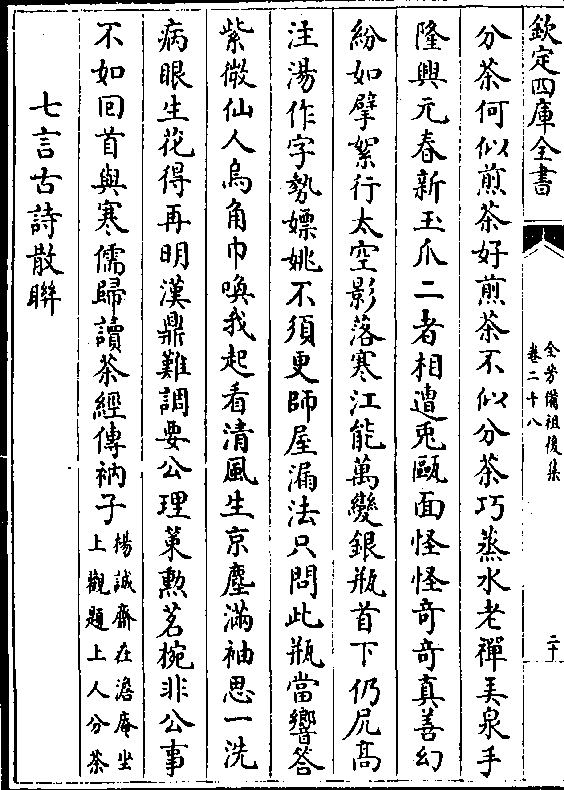 欽定四庫全書
全芳備祖後集
卷二十八
二十
分茶何似煎茶好煎茶不似分茶巧蒸水老禪弄泉手
隆興元春新玉爪二者相遭兎甌面怪怪奇奇真善幻
紛如擘絮行太空影落寒江能萬變銀瓶首下仍尻髙
注湯作字勢嫖姚不須更師屋漏法只問此瓶當響答
紫微仙人烏角巾喚我起看清風生京塵滿袖思一洗
病眼生花得再明漢鼎難調要公理䇿勲茗椀非公事
不如回首與寒儒歸讀茶經傳衲子楊誠齋在澹庵坐
上觀題上人分茶
七言古詩散聨